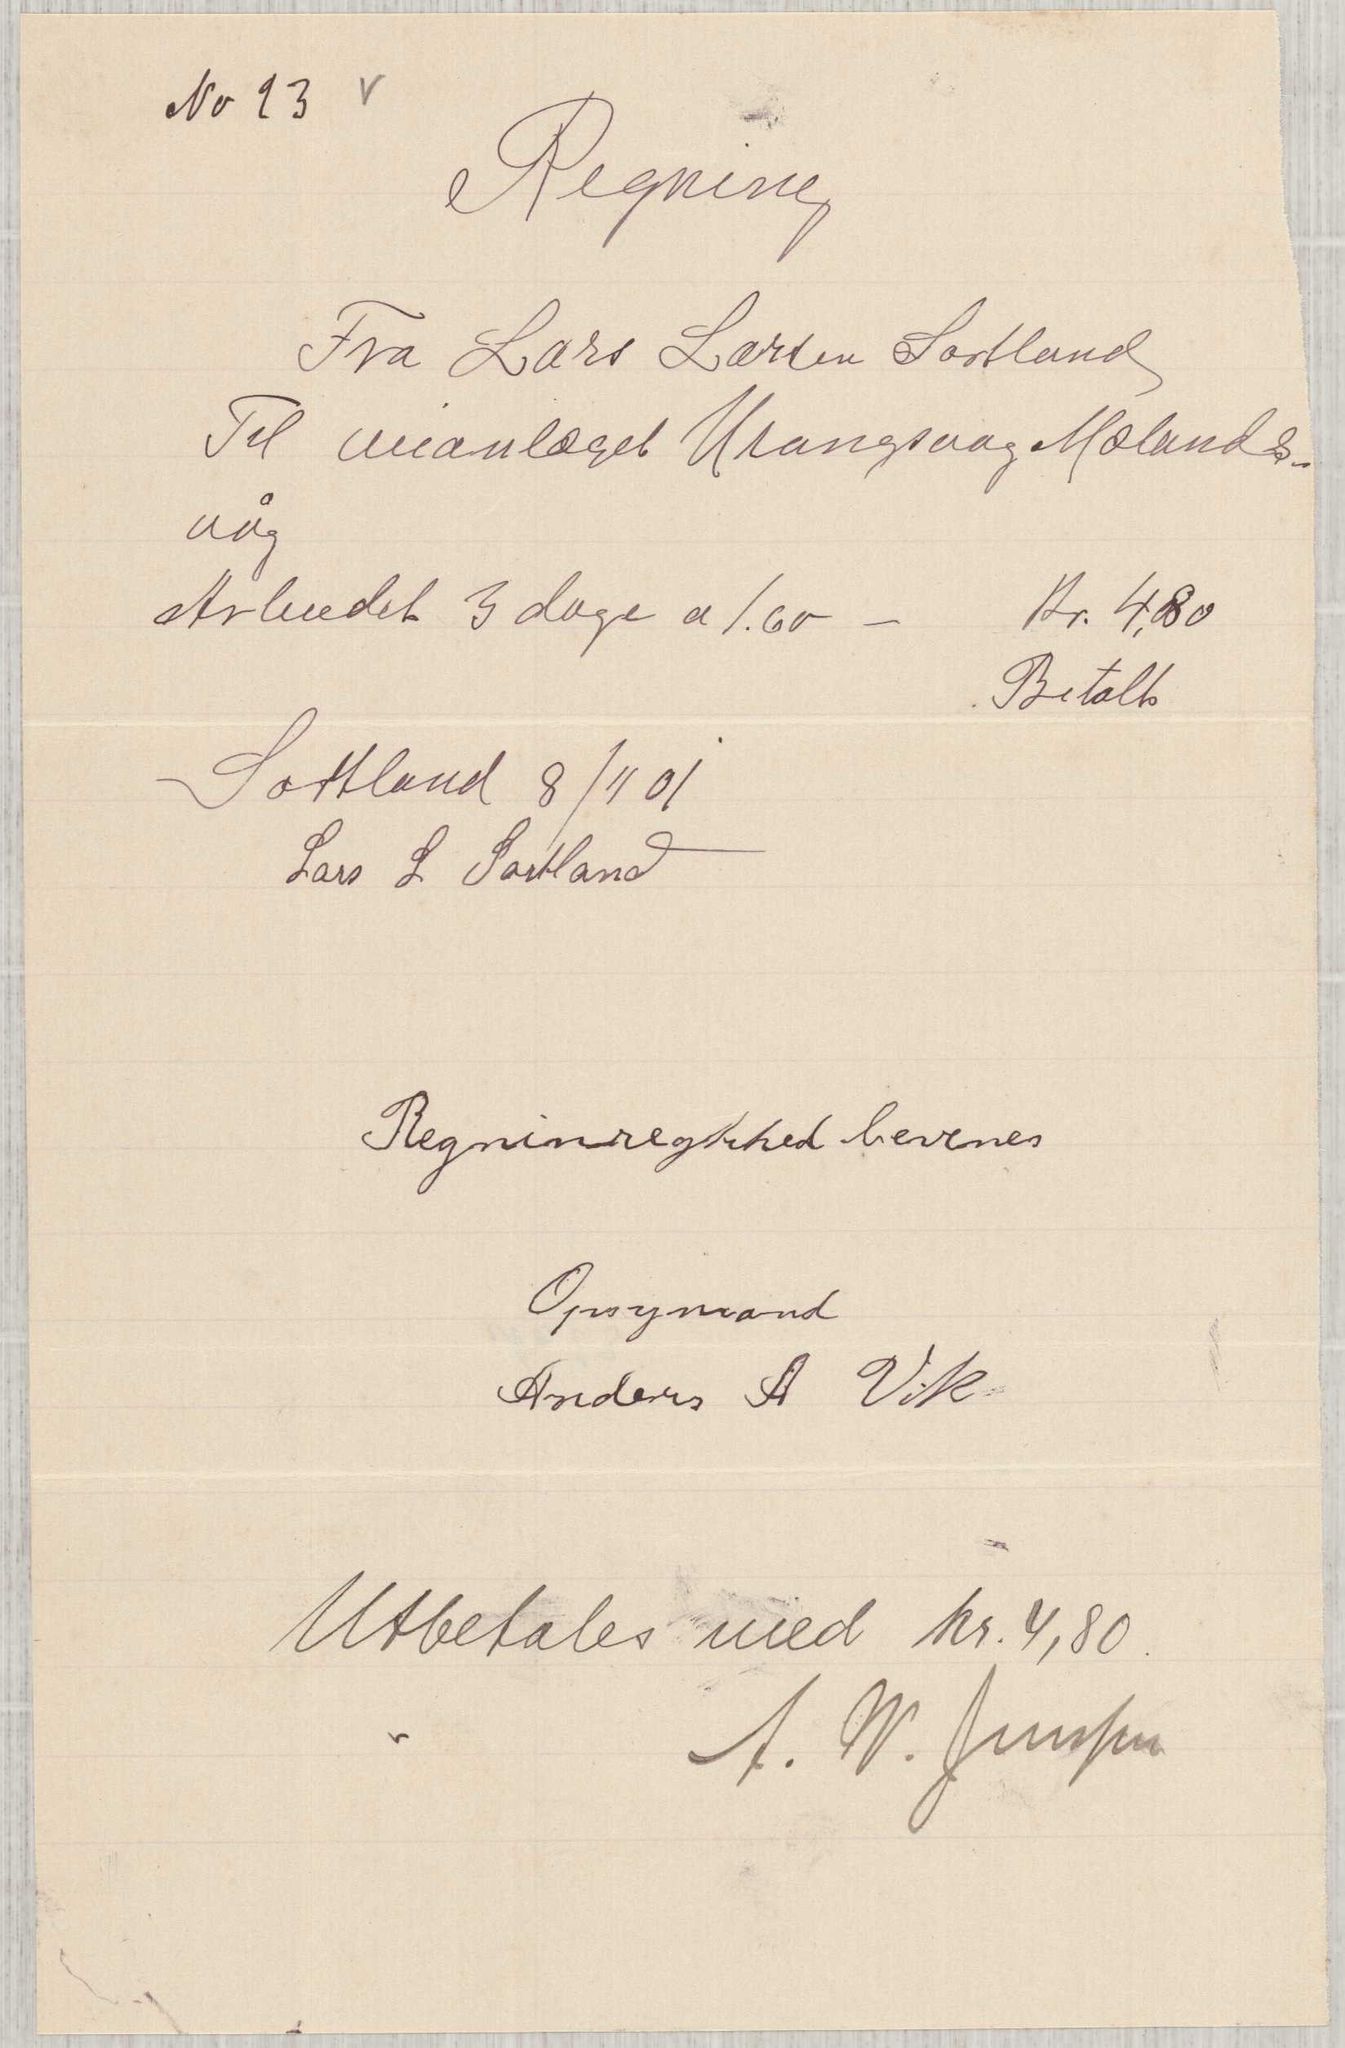 No 23 v
Regning
Fra Lars Larsen Sortland
Til veianlæget Urangsvag Mælands-
våg
Arbeidet 3 dage a 1.60 – Kr. 4,80
Betalt
Sortland 8/11 01
Lars L Sortland
Regninregtihed bevenes
Opsymand
Anders A Vik
Utbetales med kr. 4,80.
A. W.